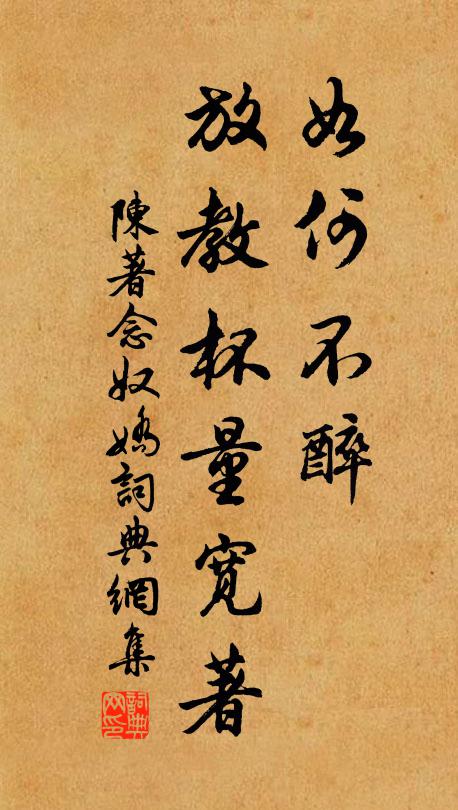 如何不醉
放教杯量寬著
陳著念奴嬌詞典網集
詞典網印